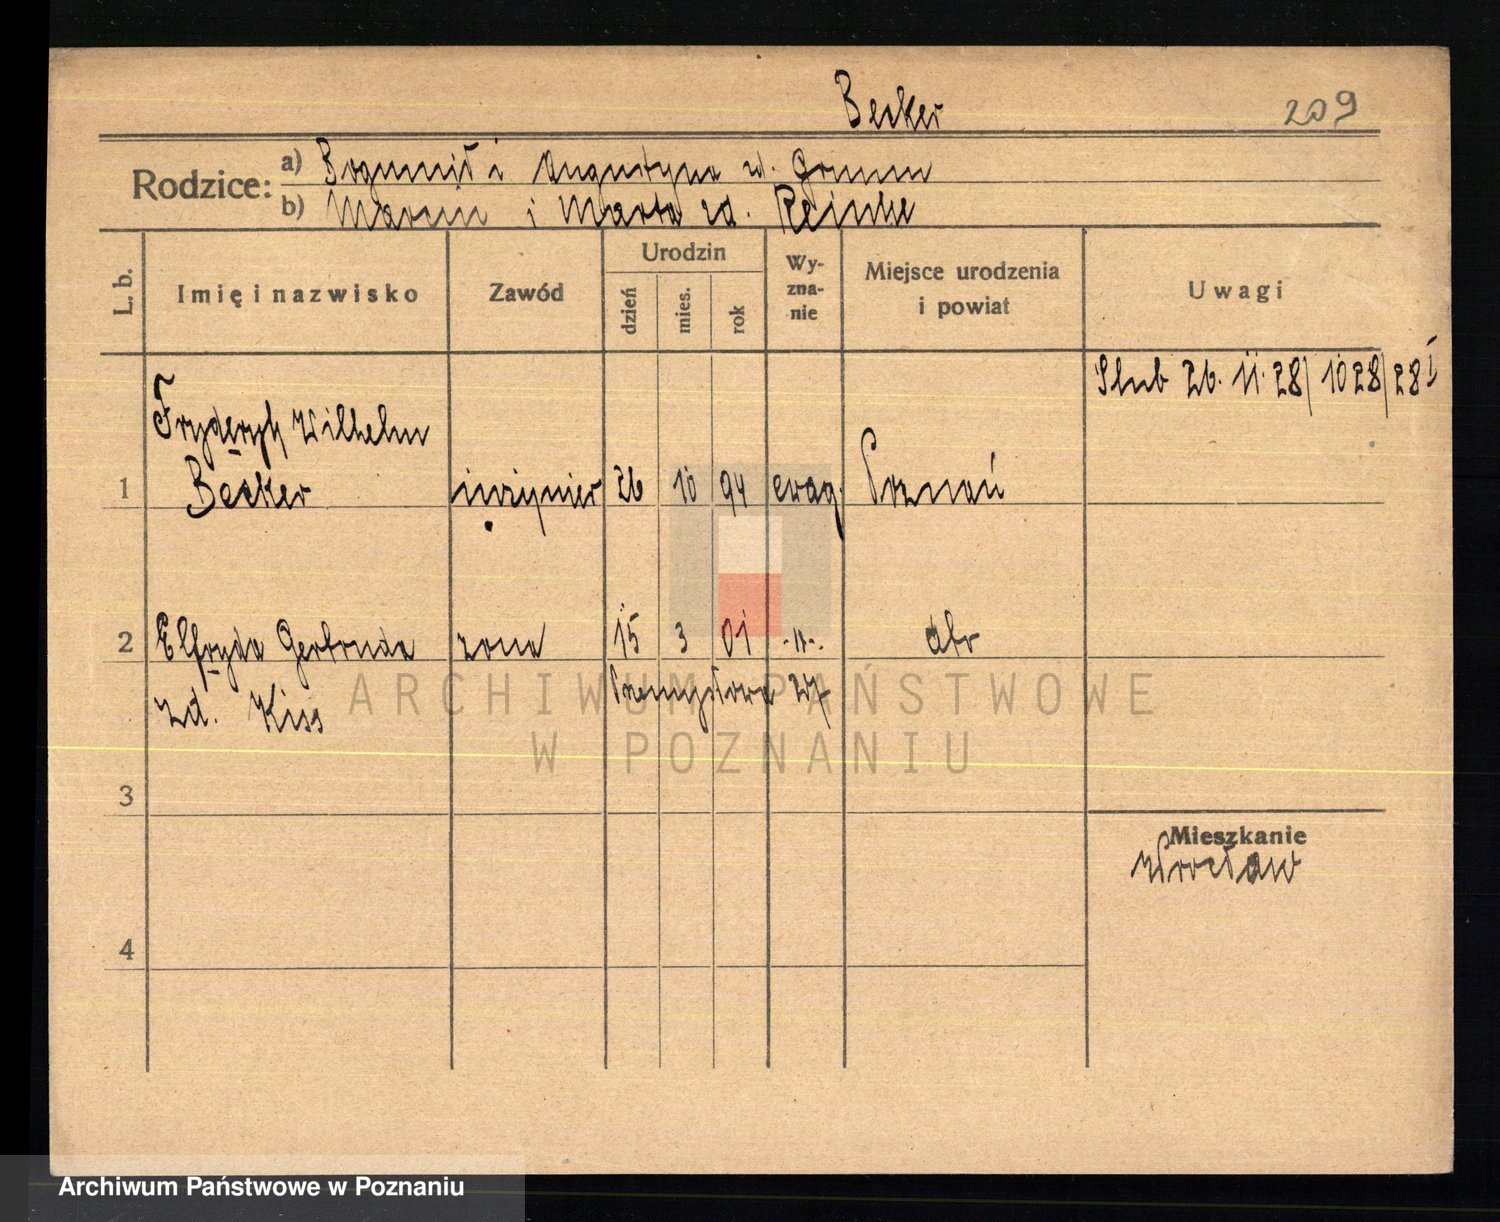 Becker
209
Rodzice:
a) Bogumił i Augustyna zd. Grimm
b) Marcin i Marta zd. Reinke
L. b.
Imię i nazwisko
Zawód
Urodzin
dzień
mies.
rok
Wy-
zna-
nie
Miejsce urodzenia
i powiat
Uwagi
Ślub 26. 11. 28/1028/28
Fryderyk Wilhelm
1 Becker inżynier 26 10 94 ewag. Poznań
2 Elfryda Gertruda żona 15 3 01 -"-
zd. Kiss Przemysłowa 27
ARCHIWUM PAŃSTWOWE
W POZNANIU
3
Mieszkanie
Wrocław
4
Archiwum Państwowe w Poznaniu